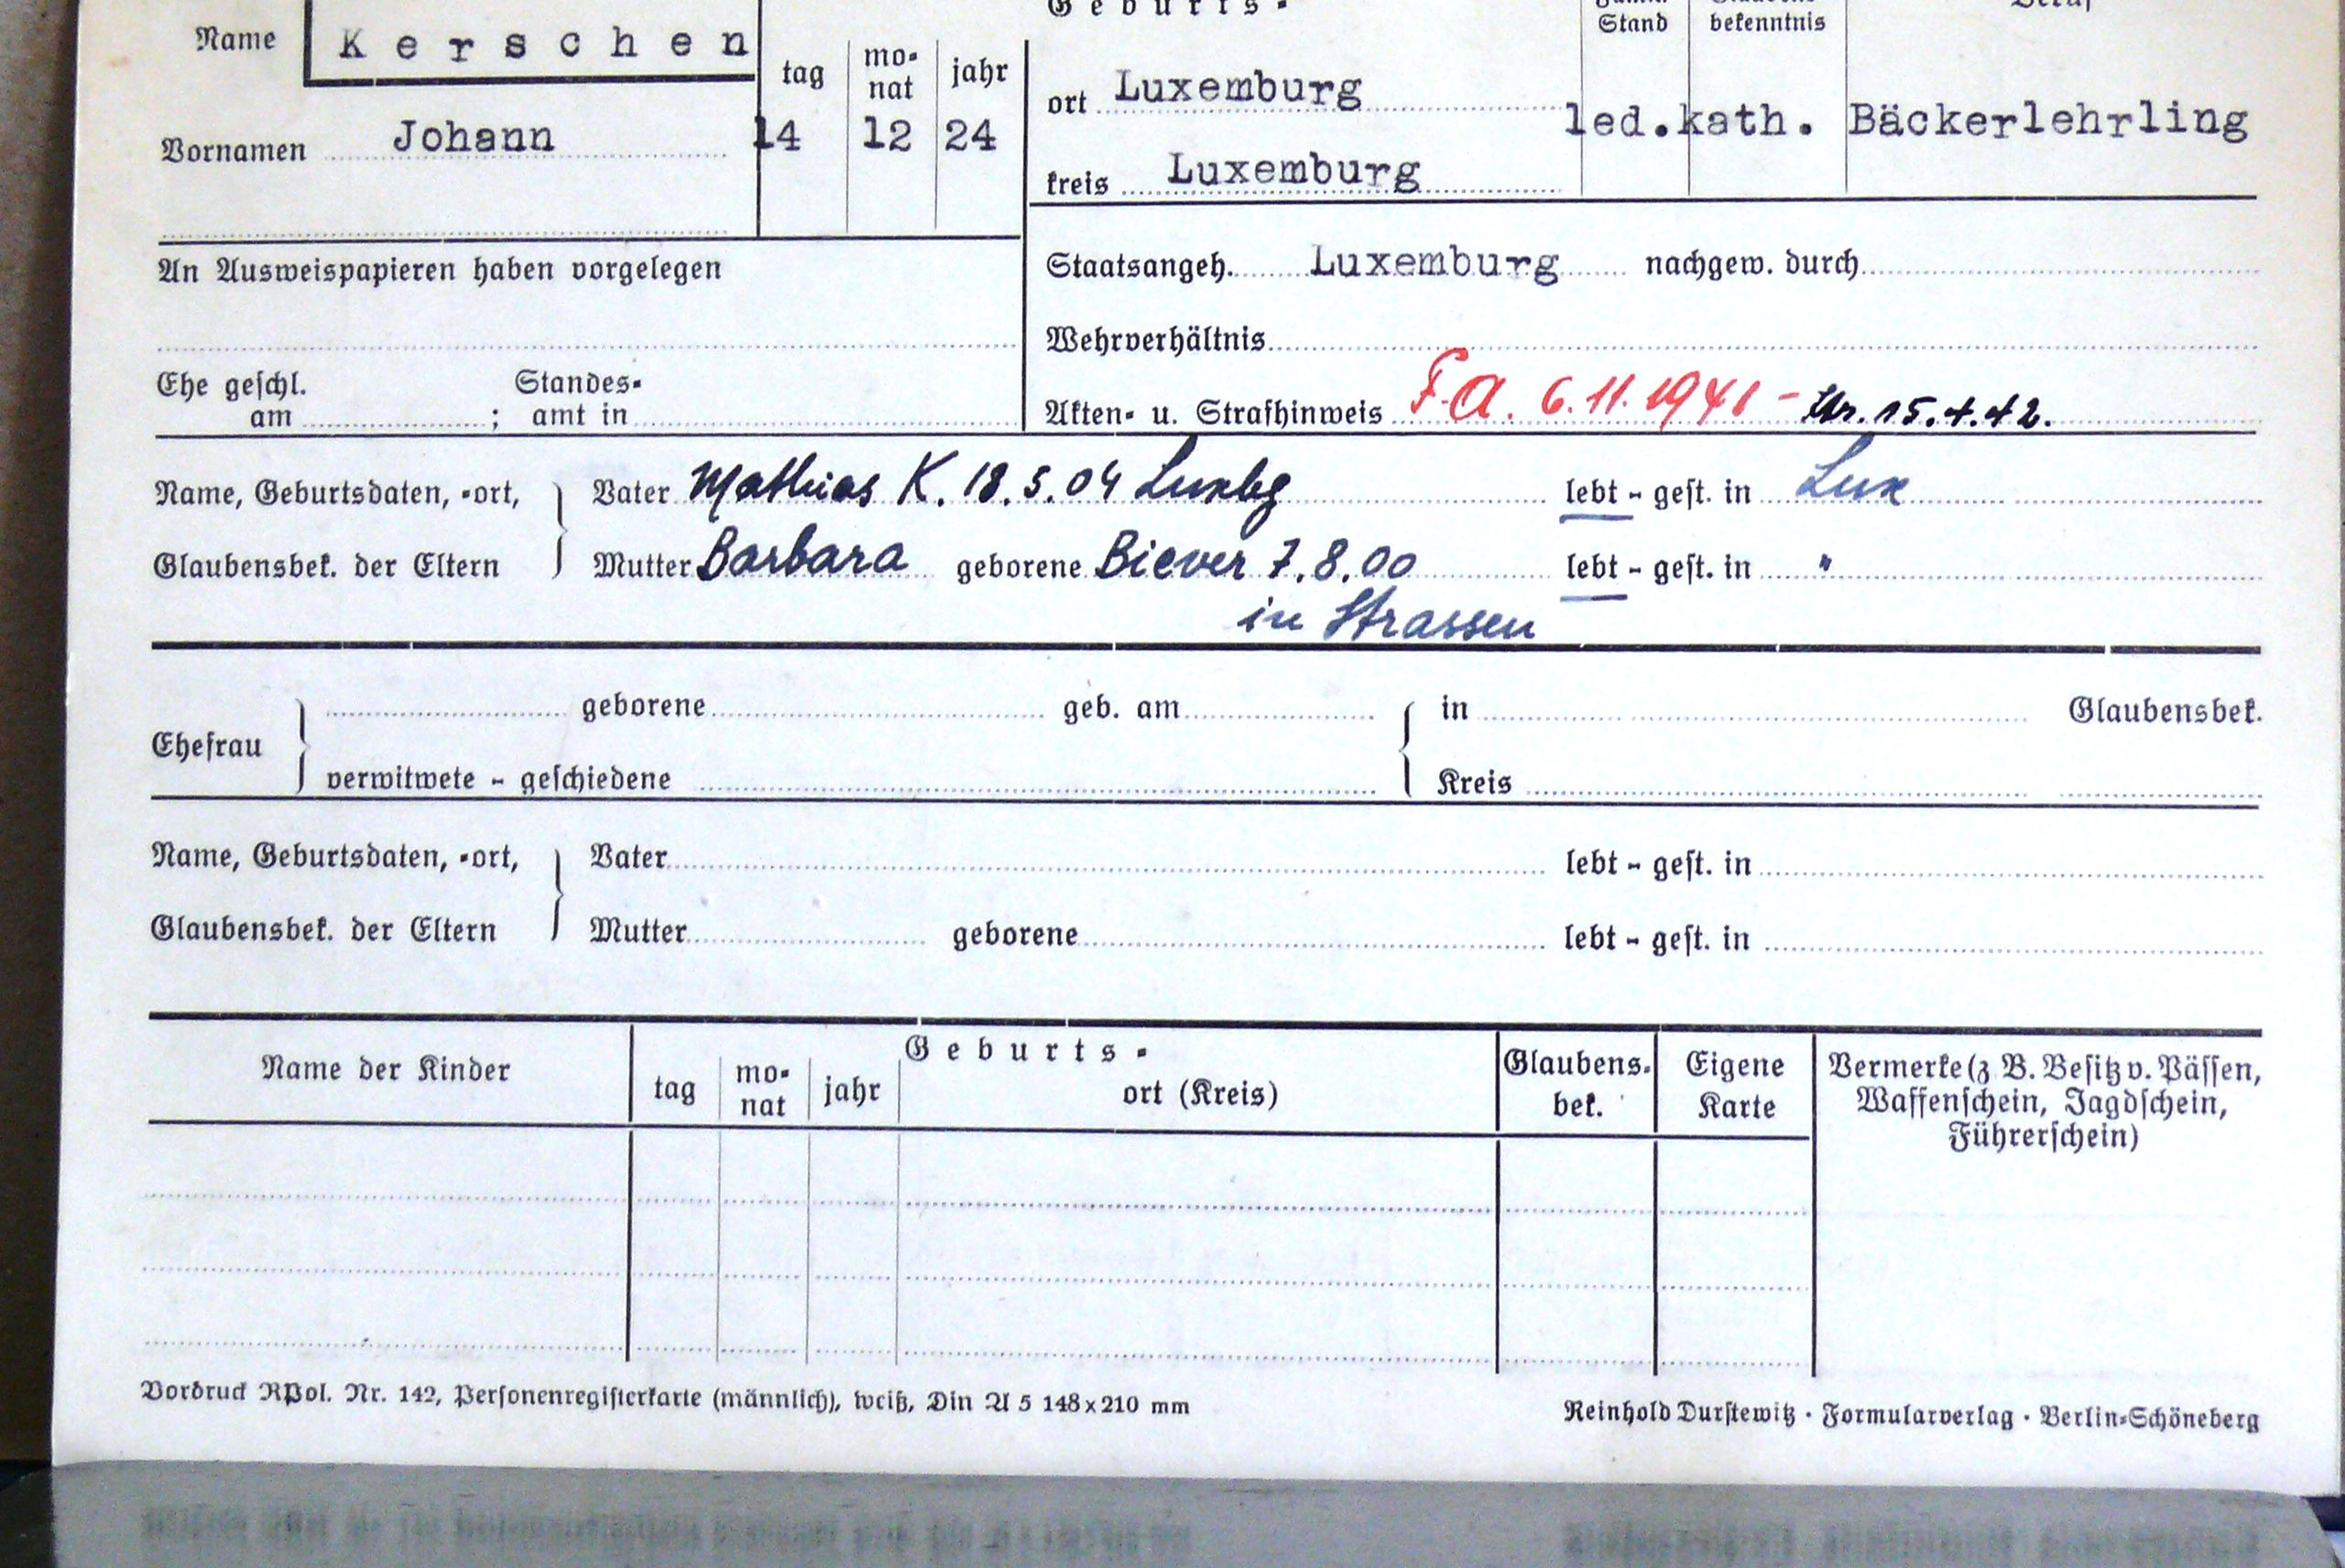 Geburts-
Name Kerschen
Stand
bekenntnis
Beruf
tag
mo-
nat
jahr
ort Luxemburg
Vornamen Johann 14 12 24
led. kath. Bäckerlehrling
kreis Luxemburg
An Ausweispapieren haben vorgelegen
Staatsangeh. Luxemburg nachgew. durch
Wehrverhältnis
Ehe geschl. Standes-
am ; amt in
Akten- u. Strafhinweis F.A. 6.11.1941 - 15.4.42.
Name, Geburtsdaten, -ort, Vater Mathias K. 18.5.04 Luxbg lebt - gest. in Lux
Glaubensbek. der Eltern Mutter Barbara geborene Biever 7.8.00 lebt - gest. in "
in Strassen
geborene geb. am in Glaubensbek.
Ehefrau
verwitwete - geschiedene Kreis
Name, Geburtsdaten, -ort, Vater lebt - gest. in
Glaubensbek. der Eltern Mutter geborene lebt - gest. in
Name der Kinder
Geburts-
tag
mo-
nat
jahr
ort (Kreis)
Glaubens-
bek.
Eigene
Karte
Vermerke (z B. Besitz v. Pässen,
Waffenschein, Jagdschein,
Führerschein)
Vordruck RPol. Nr. 142, Personenregisterkarte (männlich), weiß, Din A 5 148x210 mm
Reinhold Durstewitz · Formularverlag · Berlin-Schöneberg